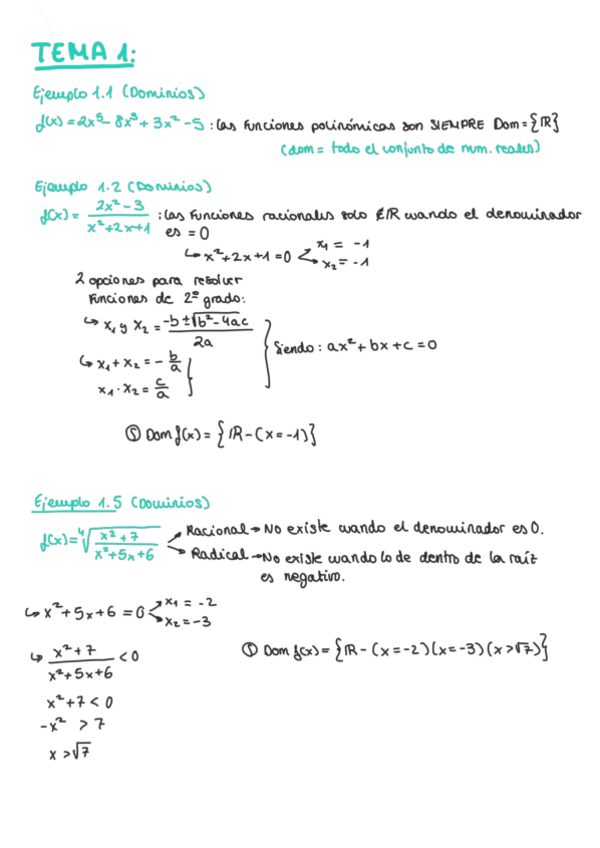 TEMA 1:
Ejemplo 1.1 (Dominios)
f(x) = 2x⁵ - 8x³ + 3x² - 5 : Las funciones polinómicas son SIEMPRE Dom = {ℝ}
(dom = todo el conjunto de num. reales)
Ejemplo 1.2 (Dominios)
f(x) = (2x² - 3)/(x² + 2x + 1) : Las funciones racionales solo ∉ ℝ cuando el denominador
es = 0
↳ x² + 2x + 1 = 0 < x₁ = -1
x₂ = -1
2 opciones para resolver
funciones de 2º grado:
↳ x₁ y x₂ = (-b ± √(b² - 4ac))/2a
Siendo: ax² + bx + c = 0
↳ x₁ + x₂ = - b/a
x₁ · x₂ = c/a
Ⓢ Dom f(x) = {ℝ - (x = -1)}
Ejemplo 1.5 (Dominios)
f(x) = ⁴√((x² + 7)/(x² + 5x + 6)) → Racional → No existe cuando el denominador es 0.
→ Radical → No existe cuando lo de dentro de la raíz
es negativo.
↳ x² + 5x + 6 = 0 < x₁ = -2
x₂ = -3
↳ (x² + 7)/(x² + 5x + 6) < 0
Ⓢ Dom f(x) = {ℝ - (x = -2)(x = -3)(x > √7)}
x² + 7 < 0
-x² > 7
x > √7